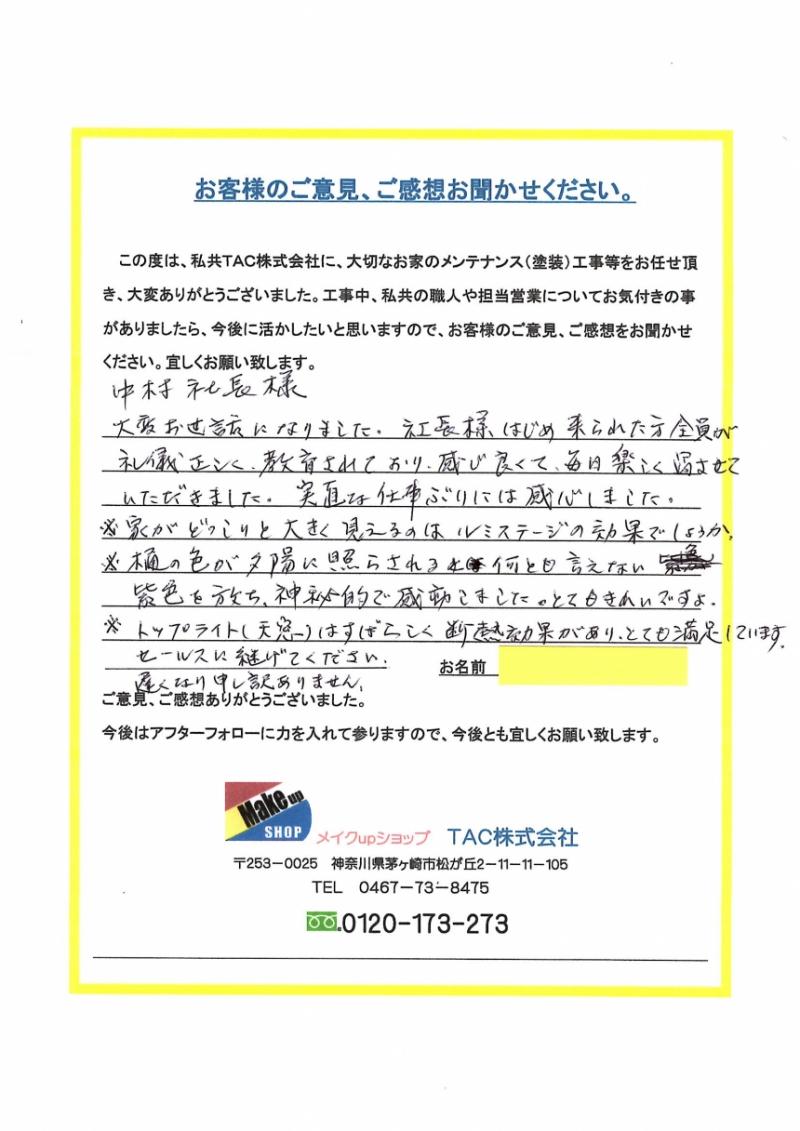 お客様のご意見、ご感想お聞かせください。
この度は、私共TAC株式会社に、大切なお家のメンテナンス（塗装）工事等をお任せ頂
き、大変ありがとうございました。工事中、私共の職人や担当営業についてお気付きの事
がありましたら、今後に活かしたいと思いますので、お客様のご意見、ご感想をお聞かせ
ください。宜しくお願い致します。
中村社長様
大変お世話になりました。社長様はじめ来られた方全員が
礼儀正しく、教育されており、感じ良くて、毎日楽しく過させて
いただきました。実直な仕事ぶりには感心しました。
※家がどっしりと大きく見えるのはルミステージの効果でしょうか。
※樋の色が夕陽に照らされると何とも言えない
紫色を放ち、神秘的で感動しました。とてもきれいですよ。
※トップライト(天窓)はすばらしく断熱効果があり、とても満足しています。
セールスに継げてください。
お名前
遅くなり申し訳ありません。
ご意見、ご感想ありがとうございました。
今後はアフターフォローに力を入れて参りますので、今後とも宜しくお願い致します。
Make up
SHOP
メイクupショップ TAC株式会社
〒253-0025 神奈川県茅ヶ崎市松が丘2-11-11-105
TEL 0467-73-8475
0120-173-273